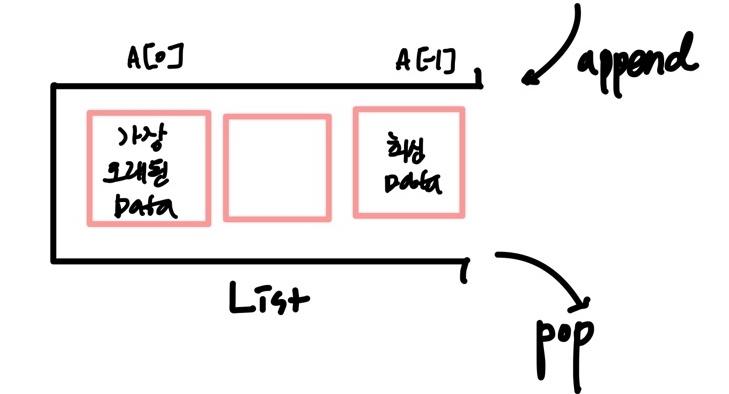 A[0]
A[-1]
append
가장
오래된
Data
최신
Data
List
pop